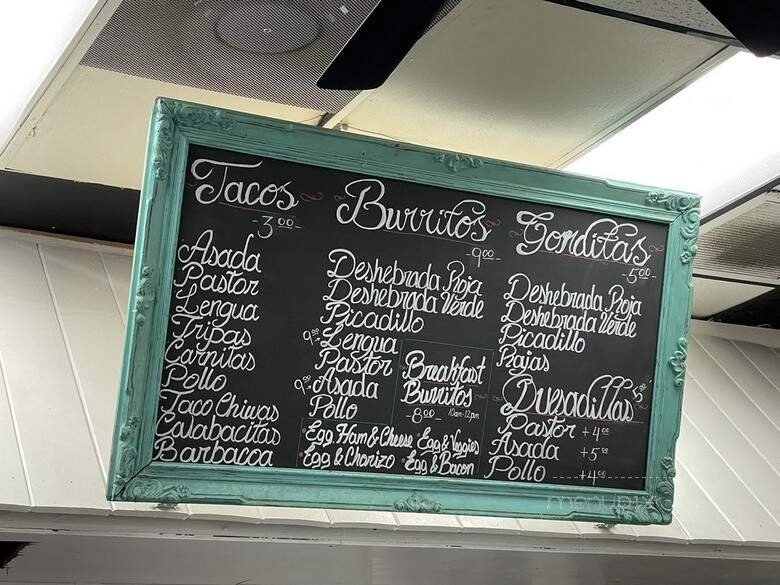 Tacos
-3.00-
Asada
Pastor
Lengua
Tripas
Carnitas
Pollo
Taco Chivas
Calabacitas
Barbacoa
Burritos
-9.00-
Deshebrada Roja
Deshebrada Verde
Picadillo
Lengua
Pastor
Asada
Pollo
Breakfast
Burritos
-8.00- 10am-12pm
Egg Ham & Cheese • Egg & Veggies
Egg & Chorizo • Egg & Bacon
Gorditas
-5.00-
Deshebrada Roja
Deshebrada Verde
Picadillo
Rajas
Quesadillas
Pastor +4.00
Asada +5.00
Pollo +4.00